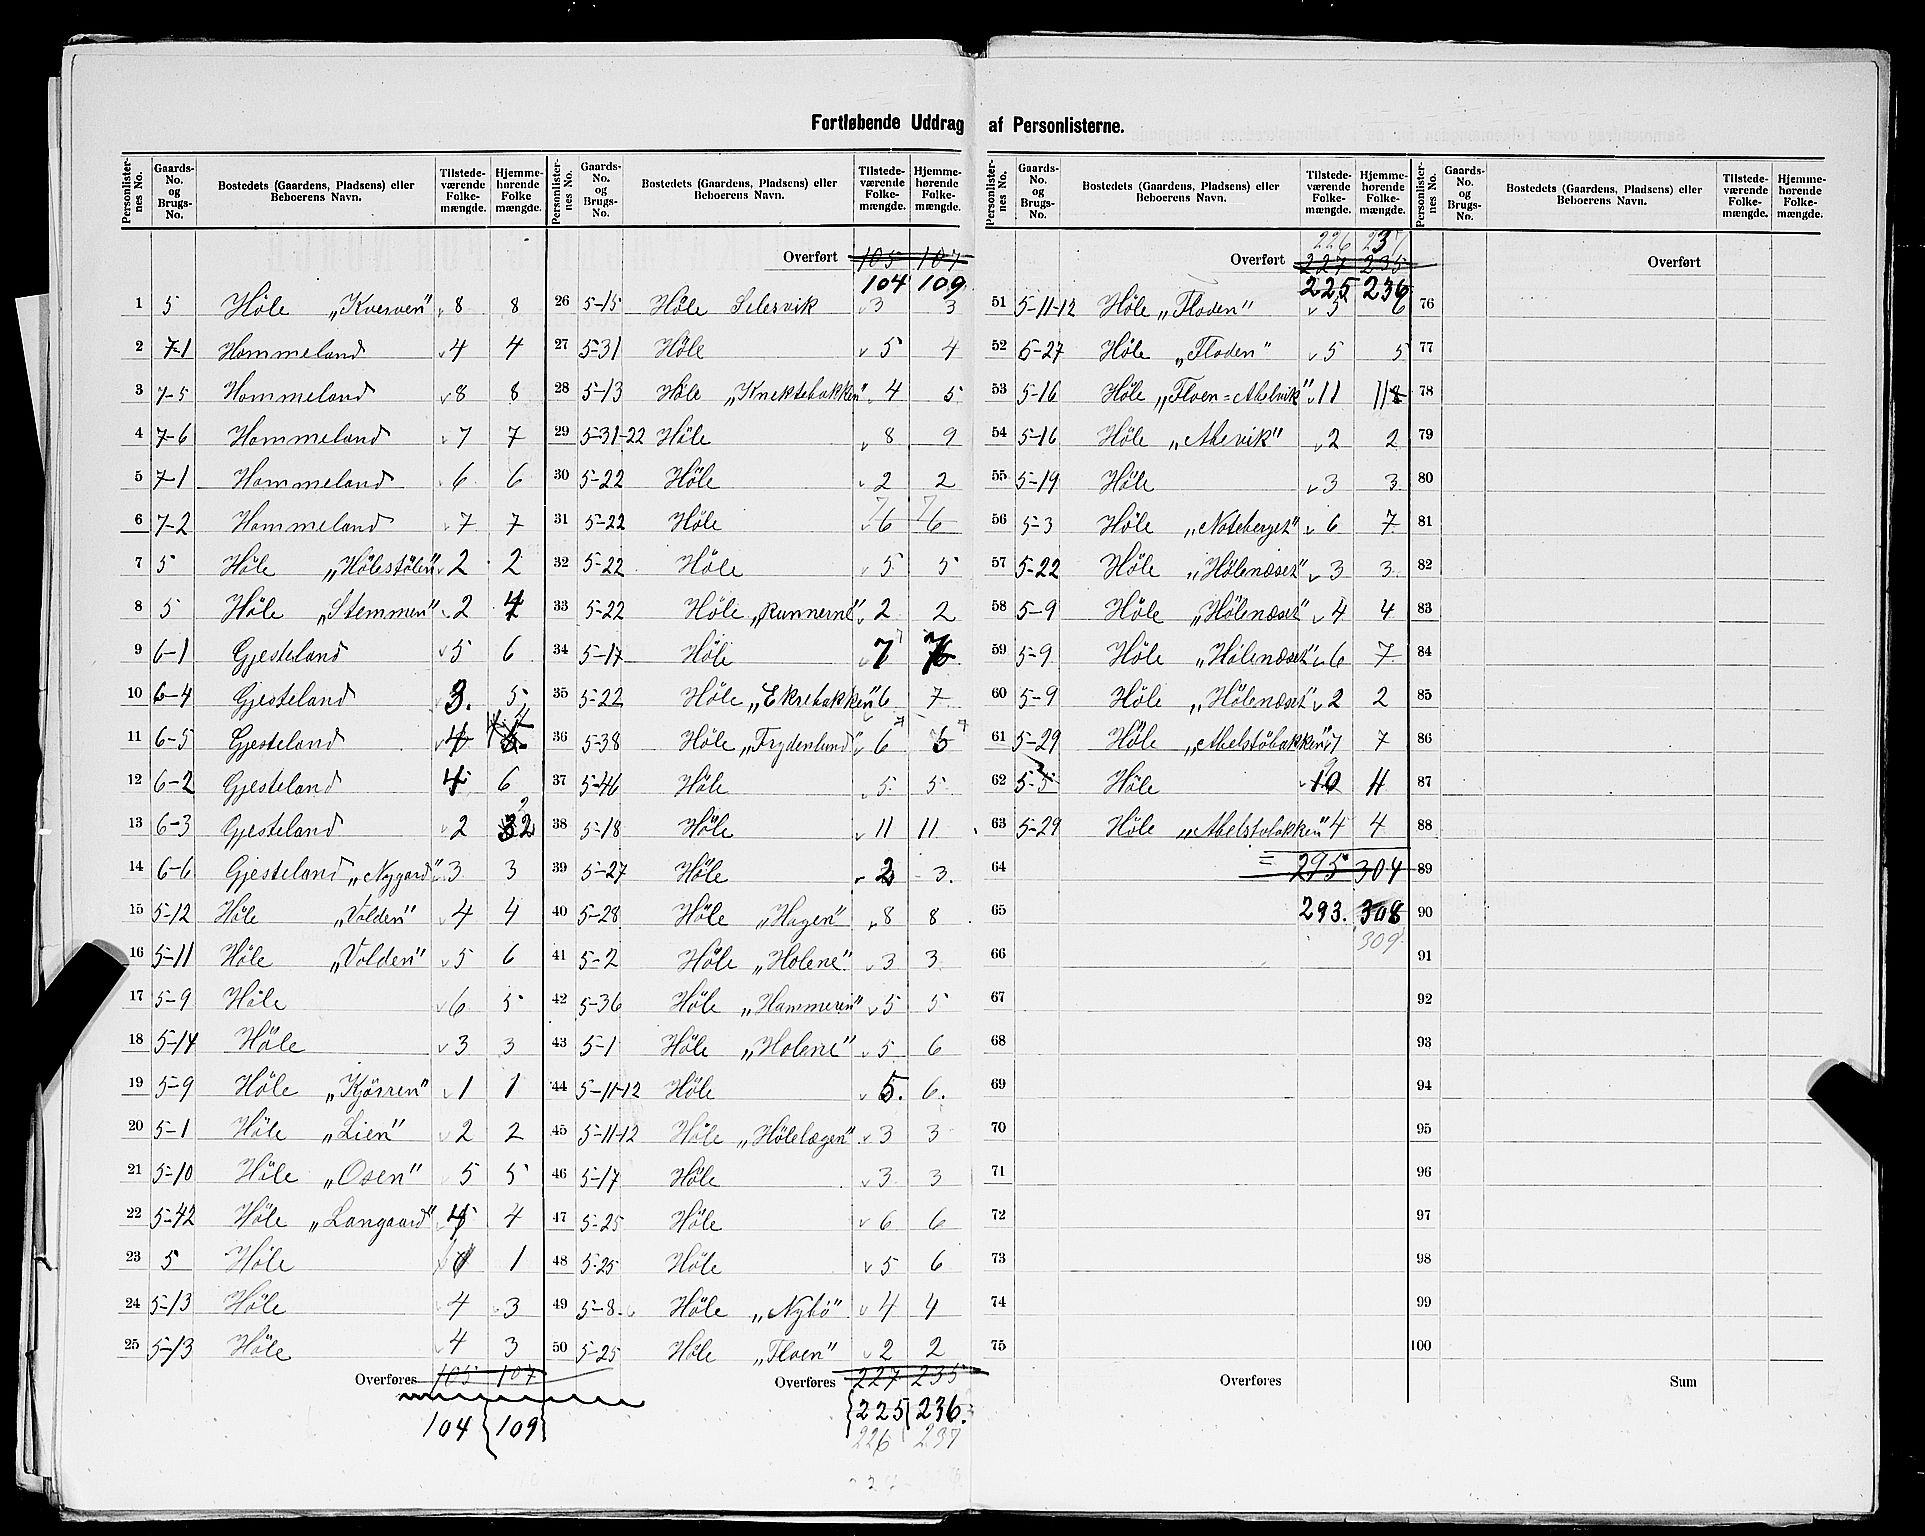 Fortløbende Uddrag af Personlisterne.
Personlister-nes No. | Gaards-No. og Brugs-No. | Bostedets (Gaardens, Pladsens) eller Beboerens Navn. | Tilstede-værende Folke-mængde. | Hjemme-hørende Folke mængde.
1 5 Höle „Kverven" 8 8
2 7-1 Hommeland 4 4
3 7-5 Hommeland 8 8
4 7-6 Hommeland 7 7
5 7-1 Hommeland 6 6
6 7-2 Hommeland 7 7
7 5 Höle „Hölestölen" 2 2
8 5 Höle „Stemmen" 2 4
9 6-1 Gjesteland 5 6
10 6-4 Gjesteland 3. 5
11 6-5 Gjesteland 4
12 6-2 Gjesteland 4 6
13 6-3 Gjesteland 2 2
14 6-6 Gjesteland „Nygard" 3 3
15 5-12 Höle „Volden" 4 4
16 5-11 Höle „Volden" 5 6
17 5-9 Höle 6 5
18 5-14 Höle 3 3
19 5-9 Höle „Kjörren" 1 1
20 5-1 Höle „Lien" 2 2
21 5-10 Höle „Osen" 5 5
22 5-42 Höle „Langaard" 4
23 5 Höle 1
24 5-13 Höle 4 3
25 5-13 Höle 4 3
Overføres 105 107
104 109
Personlister-nes No. | Gaards-No. og Brugs-No. | Bostedets (Gaardens, Pladsens) eller Beboerens Navn. | Tilstede-værende Folke-mængde. | Hjemme-hørende Folke-mængde.
Overført 105 107
104 109
26 5-15 Höle Selesvik 3 3
27 5-31 Höle 5 4
28 5-13 Höle „Knektebakken" 4 5
29 5-31-22 Höle 8 9
30 5-22 Höle 2 2
7 7
31 5-22 Höle 6 6
32 5-22 Höle 5 5
33 5-22 Höle „Runnerne" 2 2
34 5-17 Höle 7 7
35 5-22 Höle „Ekrebakken" 6 7
36 5-38 Höle „Frydenlund" 6
37 5-46 Höle 5 5
38 5-18 Höle 11 11
39 5-27 Höle 2 3.
40 5-28 Höle „Hagen" 8 8
41 5-2 Höle „Holene" 3 3
42 5-36 Höle „Hammeren" 5 5
43 5-1 Höle „Holene" 5 6
44 5-11-12 Höle 5. 6.
45 5-11-12 Höle „Hölelægen" 3 3
46 5-17 Höle 3 3
47 5-25 Höle 6 6
48 5-25 Höle 5 6
49 5-8 Höle „Nybö" 4 4
50 5-25 Höle „Floen" 2 2
Overføres 227 235
225 236.
226 237
Personlister-nes No. | Gaards-No. og Brugs-No. | Bostedets (Gaardens, Pladsens) eller Beboerens Navn. | Tilstede-værende Folke-mængde. | Hjemme-hørende Folke-mængde.
226 237
Overført 227 235
225 236
51 5-11-12 Höle „Floden" 5 6
52 5-27 Höle „Floden" 5 5
53 5-16 Höle „Floen=Abelvik" 11 11
54 5-16 Höle „Abevik" 2 2
55 5-19 Höle 3 3
56 5-3 Höle „Noteberget" 6 7
57 5-22 Höle „Hölenæset" 3 3
58 5-9 Höle „Hölenæset" 4 4
59 5-9 Höle „Hölenæset" 6 7
60 5-9 Höle „Hölenæset" 2 2
61 5-29 Höle „Abelstöbakken" 7 7
62 5-5 Höle 10 11
63 5-29 Höle „Abelstøbakken" 4 4
64 = 295 304
65 293. 308
309
66
67
68
69
70
71
72
73
74
75
Overføres
Personlister-nes No. | Gaards-No. og Brugs-No. | Bostedets (Gaardens, Pladsens) eller Beboerens Navn. | Tilstede-værende Folke-mængde. | Hjemme-hørende Folke-mængde.
Overført
76
77
78
79
80
81
82
83
84
85
86
87
88
89
90
91
92
93
94
95
96
97
98
99
100
Sum